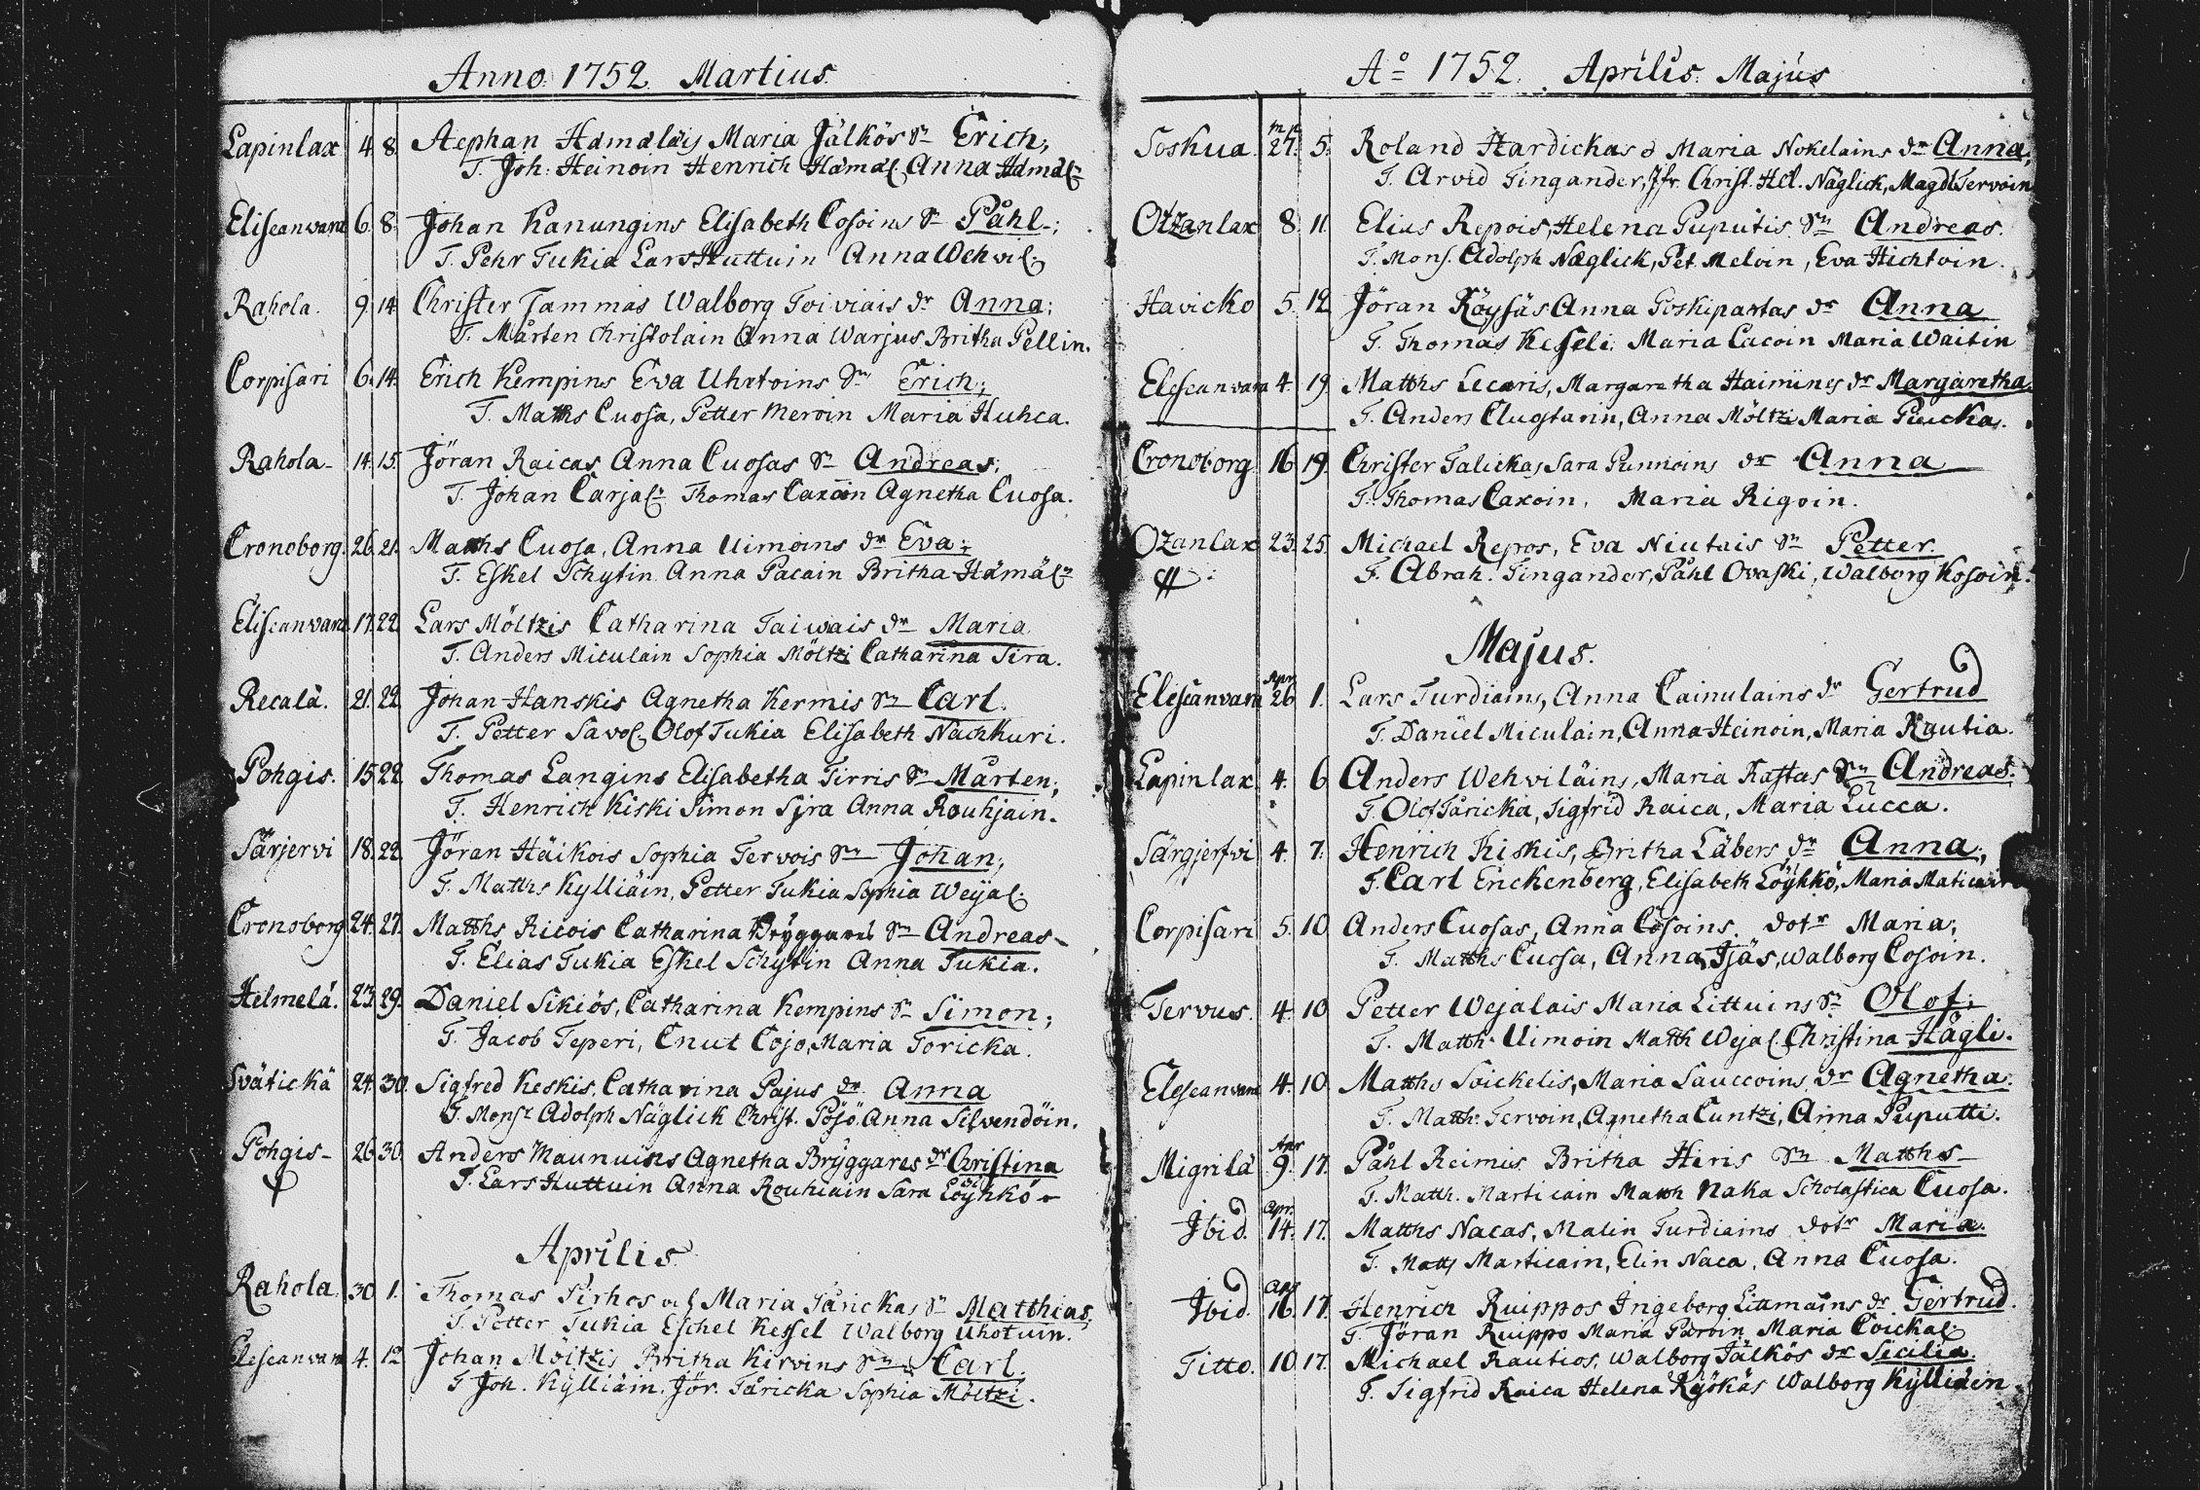 Anno. 1752. Martius.
Lapinlax 4. 8. Stephan Hämäläis Maria Jälkös Sn Erich;
T. Joh: Heinoin Henrich Hämäl. Anna Hämälr
Eliseanvara 6. 8. Johan Kanungins Elisabeth Cosoins Sn Påhl;
T. Pehr Tukia Lars Huttuin Anna Wehvil.
Rahola. 9. 14 Christer Tammas Walborg Toiviais dr Anna;
T. Mårten Christolain Anna Warjus Britha Pellin.
Corpisari 6. 14. Erich Kempins Eva Uhrtoins Sn Erich;
T. Matths Cuosa, Petter Meroin Maria Huhca.
Rahola 14. 15. Jöran Raicas Anna Cuosas Sn Andreas;
T. Johan Carjalr Thomas Caxoin Agnetha Cuosa.
Cronoborg. 26. 21. Matths Cuosa, Anna Uimoins dr Eva;
T. Eskel Schytin Anna Pacain Britha Hämälr
Eliseanvara. 17. 22. Lars Möltzis Catharina Taiwais dr Maria
T. Anders Miculain Sophia Möltzi Catharina Sira.
Recalä. 21. 22. Johan Hanskis Agnetha Kermis Sn Carl.
T. Petter Savol. Olof Tukia Elisabeth Nächkuri.
Pohgis. 15. 22. Thomas Langins Elisabetha Tirris Sn Mårten;
T. Henrich Kiski Simon Sira Anna Rouhjain.
Särjervi 18. 22. Jöran Häikois Sophia Tervois Sn Johan;
T. Matths Kylliäin, Petter Tukia Sophia Weijal.
Cronoborg 24. 27. Matths Ricois Catharina Bryggares Sn Andreas
T. Elias Tukia Eskel Schytin Anna Tukia.
Helmelä. 23. 29. Daniel Sikiös, Catharina Kempins Sn Simon;
T. Jacob Teperi, Cnut Cojo, Maria Toricka.
Svätickä 24. 30. Sigfred Keskis, Catharina Pajus dr Anna
T. Monsr Adolph Näglick Christ. Pösö Anna Silvendöin.
Pohgis 26. 30. Anders Maunuins Agnetha Bryggares dr Christina
T. Lars Huttuin Anna Rouhiain Sara Löyhkö
Aprilis.
Rahola. 30 1. Thomas Sirhos och Maria Tårickas Sn Matthias.
T. Petter Tukia Eschel Kessel Walborg Uhotuin.
Elescanvara 4. 12 Johan Möltzis Britha Kirvins Sn Carl.
T Joh. Kylliäin, Jör. Tåricka Sophia Möltzi.
Ao 1752. Aprilis. Majus
Soskua. 27. 5. Roland Hardickas o Maria Nokelains dr Anna;
T. Arvid Tingander, Jfr. Christ. Hel. Näglick, Magdl Tervoin
Otzanlax 8. 11. Elias Repois, Helena Puputis Sn Andreas.
T. Mons. Adolph Næglick, Pet. Meloin, Eva Hichtoin.
Havicko 5. 12. Jöran Röysäs Anna Poskipartas dr Anna
T. Thomas Kesseli, Maria Cacoin Maria Waitin
Elescanvara 4 19. Matths Lecaris, Margaretha Haimines dr Margaretha.
T. Anders Clugstarin, Anna Möltzi Maria Puucka.
Cronoborg. 16. 19. Christer Talickas Sara Punnoins dr Anna
T. Thomas Caxoin, Maria Rigoin.
Ozanlax 23. 25. Michael Repos, Eva Niutais Sn Petter.
T. Abrah. Tingander, Påhl Ovaski, Walborg Kosoin.
Majus.
Apr
Elescanvara 26 1. Lars Turdiains, Anna Cainulains dr Gertrud
T. Daniel Miculain, Anna Heinoin, Maria Rautia.
Lapinlax. 4. 6 Anders Wehviläins, Maria Rastas Sn Andreas.
T. Olof Tåricka, Sigfrid Raica, Maria Lucca.
Särgjerfvi 4. 7. Henrich Kiskis, Britha Läbers dr Anna;
T. Carl Enckenberg, Elisabeth Löyhkö, Maria
Corpisari 5. 10 Anders Cuosas, Anna Cosoins. dotr Maria;
T. Matths Cuosa, Anna Tjäs, Walborg Cosoin.
Tervus. 4. 10 Petter Wejalais Maria Littuins Sn Olof;
T. Matth. Uimoin Matth Wejal. Christina Hägli.
Elescanvara 4. 10. Matths Soickelis, Maria Sauccoins dr Agnetha.
T. Matth: Tervoin, Agnetha Cuntzi, Anna Puputti.
Apr
Migrilä 9. 17. Påhl Reimus Britha Hiris Sn Matths
T. Matth. Marticain Matth Naka Scholastica Cuosa.
Apr.
Ibid. 14. 17. Matths Nacas, Malin Turdiains dotr Maria.
T. Matts Marticain, Elin Naca, Anna Cuosa.
Apr
Ibid. 16. 17. Henrich Ruippos Ingeborg Littmains dr Gertrud.
T. Jöran Ruippo Maria Parvin Maria Coickal.
Titto. 10. 17. Michael Rautios, Walborg Jälkös dr Secilia.
T. Sigfrid Raica Helena Ryökäs Walborg Kylliäin